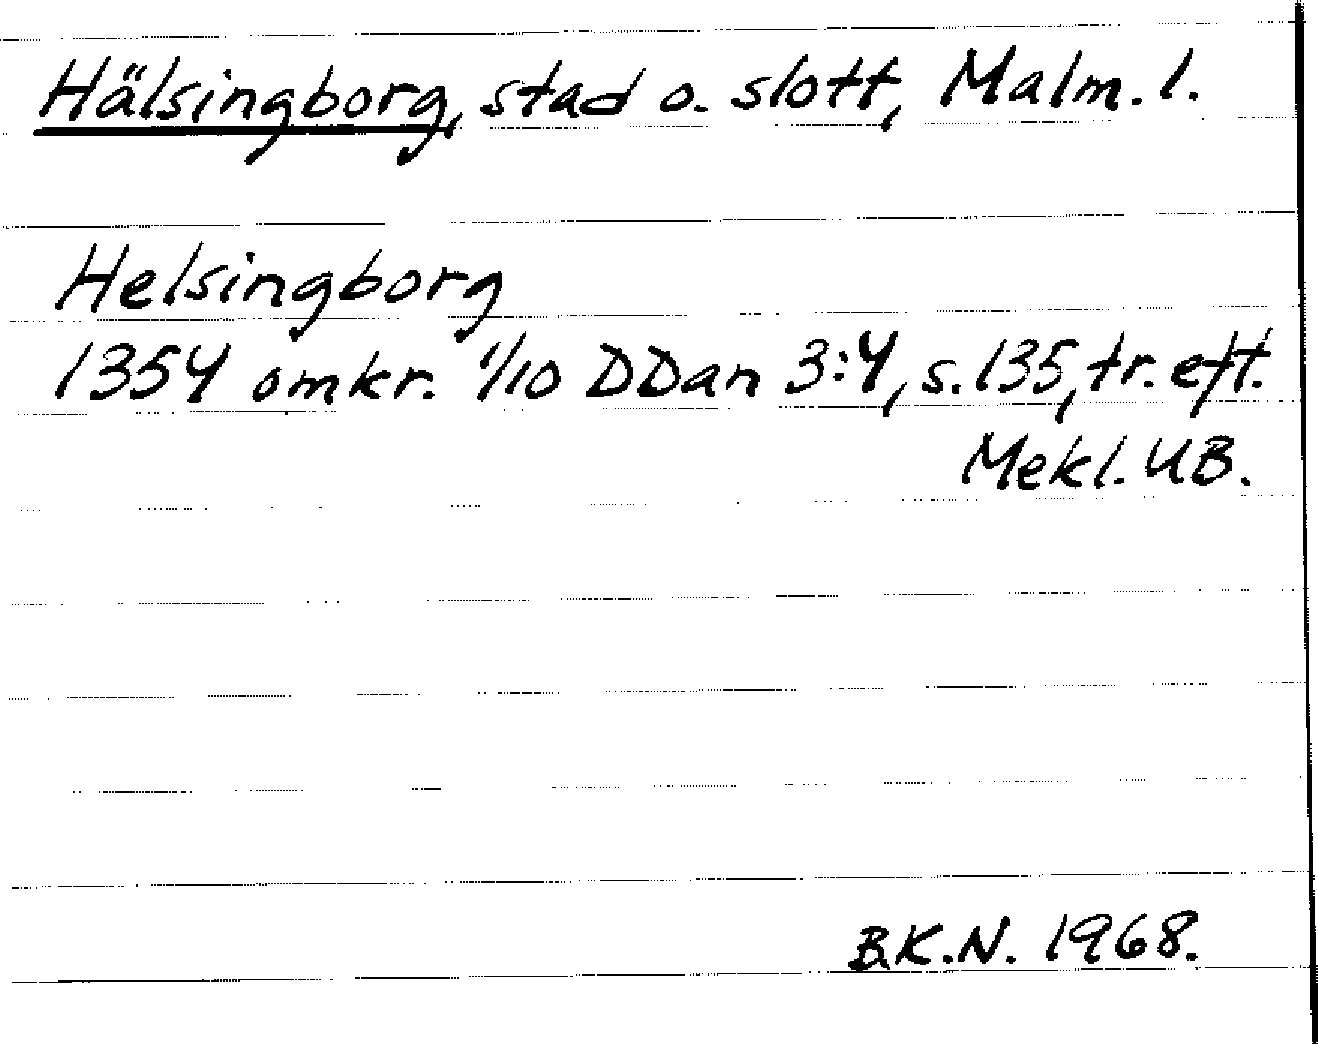 Hälsingborg, stad o. slott, Malm. l.
Helsingborg
1354 omkr. 1/10 DDan 3:4, s. 135, tr. eft.
Mekl. UB.
B.K.N. 1968.